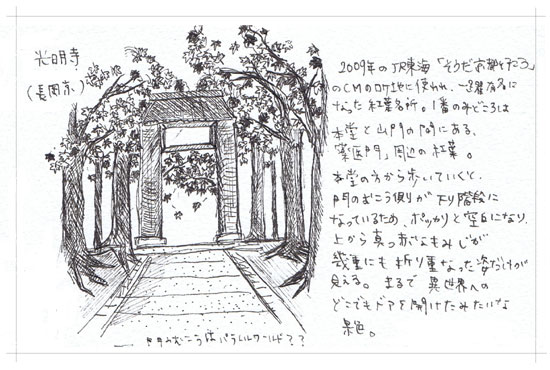 光明寺
(長岡京)
2009年のJR東海「そうだ京都行こう」
のCMのロケ地に使われ、一躍有名に
なった紅葉名所。1番のみどころは
本堂と山門の間にある、
「薬医門」周辺の紅葉。
本堂の方から歩いていくと、
門のむこう側が下り階段に
なっているため、ポッカリと空白になり、
上から真っ赤なもみじが
幾重にも折り重なった姿だけが
見える。まるで異世界への
どこでもドアを開けたみたいな
景色。
門のむこうはパラレルワールド??